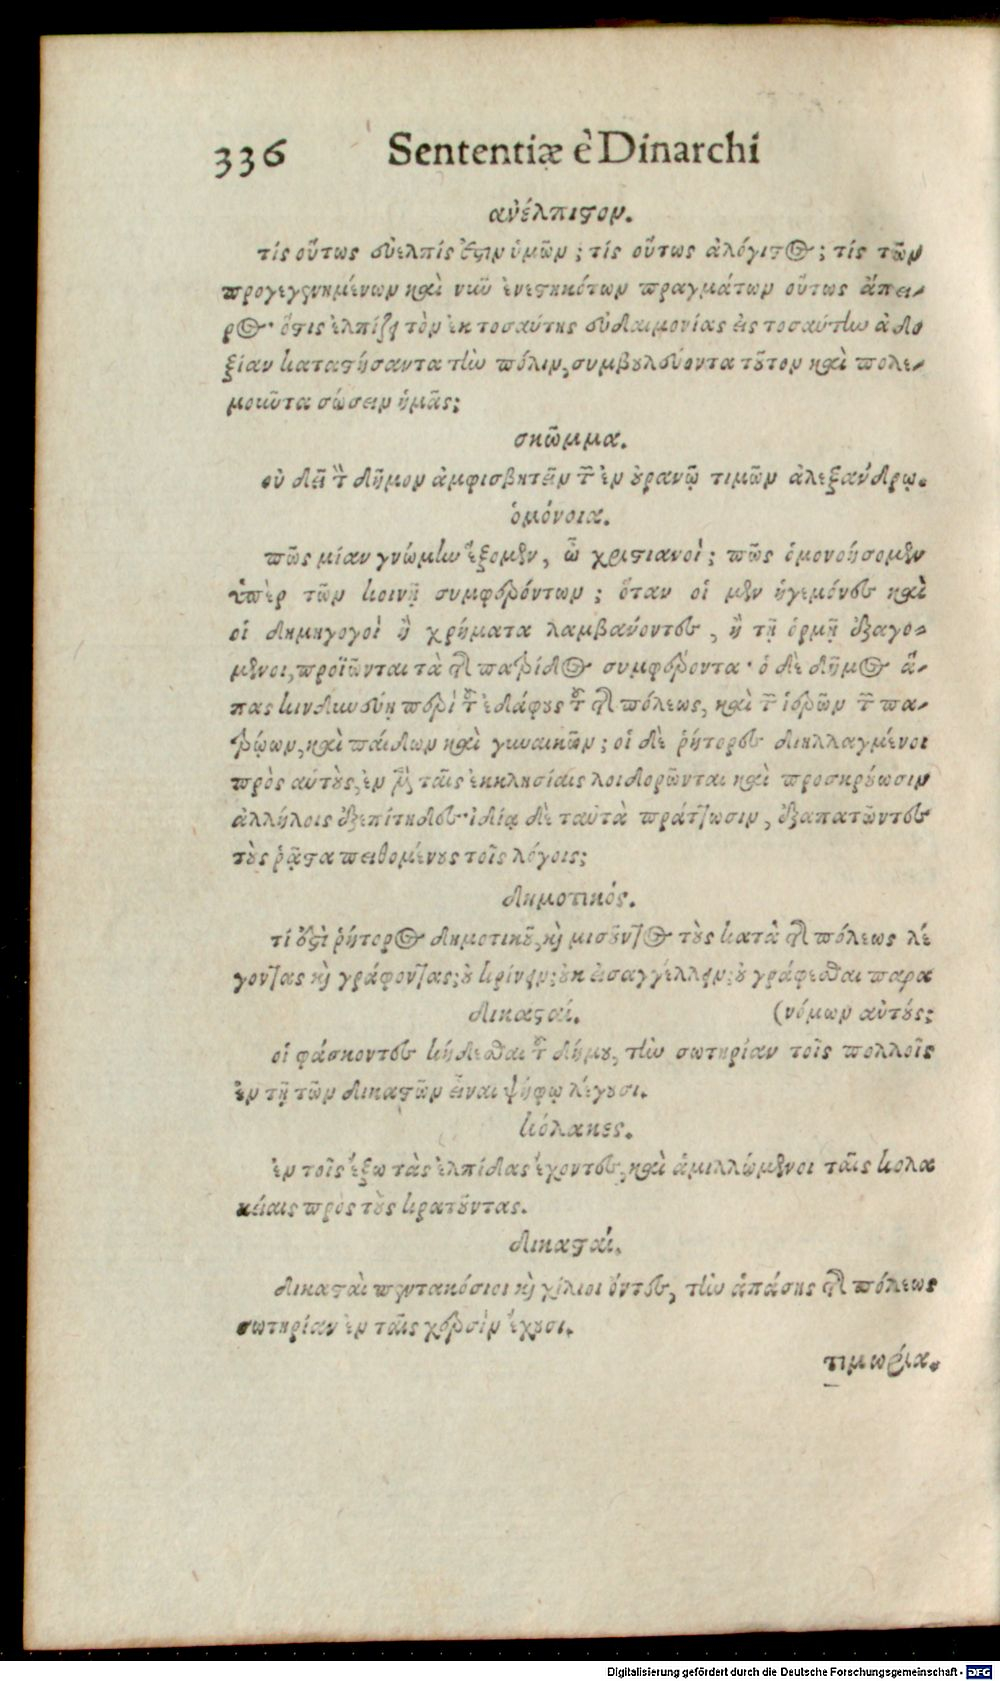 336 Sententiæ è Dinarchi
ανέλπιστον.
τίς οὕτως εὐελπίς ἐστιν ὑμῶν; τίς οὕτως ἀλόγιστος; τίς τῶν
προγεγενημένων καὶ νῦν ἐνεστηκότων πραγμάτων οὕτως ἄπει-
ρος· ὅστις ἐλπίζει τὸν ἐκ τοσαύτης εὐδαιμονίας εἰς τοσαύτην ἀδο
ξίαν καταστήσαντα τὴν πόλιν, συμβουλεύοντα τοῦτον καὶ πολε-
μοῦντα σώσειν ἡμᾶς;
σκῶμμα.
οὐ δεῖ τὸν δῆμον ἀμφισβητεῖν τῶν ἐν οὐρανῷ τιμῶν ἀλεξάνδρῳ.
ὁμόνοια.
πῶς μίαν γνώμην ἕξομεν, ὦ χριστιανοὶ; πῶς ὁμονοήσομεν
ὑπὲρ τῶν κοινῇ συμφερόντων; ὅταν οἱ μὲν ἡγεμόνες καὶ
οἱ δημηγογοὶ ἢ χρήματα λαμβανόντες, ἢ τῇ ὁρμῇ ἐξαγο-
μενοι, προϊῶνται τὰ τῆς πατρίδος συμφέροντα· ὁ δὲ δῆμος ἅ-
πας κινδυνεύῃ περὶ τοῦ ἐδάφους τοῦ τῆς πόλεως, καὶ τῶν ἱερῶν τῶν πα-
τρῴων, καὶ παίδων καὶ γυναικῶν; οἱ δὲ ῥήτορες διηλλαγμένοι
πρὸς αὑτοὺς, ἐν μὲν ταῖς ἐκκλησίαις λοιδορῶνται καὶ προσκρούωσιν
ἀλλήλοις ἐξεπίτηδες· ἰδίᾳ δὲ ταὐτὰ πράττωσιν, ἐξαπατῶντες
τοὺς ῥᾷστα πειθομένους τοῖς λόγοις;
δημοτικός.
τί ἐστὶ ῥήτορος δημοτικοῦ, καὶ μισοῦντος τοὺς κατὰ τῆς πόλεως λέ
γοντας καὶ γράφοντας; οὐ κρίνειν; οὐκ εἰσαγγέλλειν; οὐ γράφεσθαι παρα
δικασταί. (νόμων αὐτούς;
οἱ φάσκοντες κήδεσθαι τοῦ δήμου, τὴν σωτηρίαν τοῖς πολλοῖς
ἐν τῇ τῶν δικαστῶν εἶναι ψήφῳ λέγουσι.
κόλακες.
ἐν τοῖς ἔξω τὰς ἐλπίδας ἔχοντες, καὶ ἁμιλλώμενοι ταῖς κολα
κείαις πρὸς τοὺς κρατοῦντας.
δικασταί.
δικασταὶ πεντακόσιοι καὶ χίλιοι ὄντες, τὴν ἁπάσης τῆς πόλεως
σωτηρίαν ἐν ταῖς χερσὶν ἔχουσι.
τιμωρία.
Digitalisierung gefördert durch die Deutsche Forschungsgemeinschaft - DFG